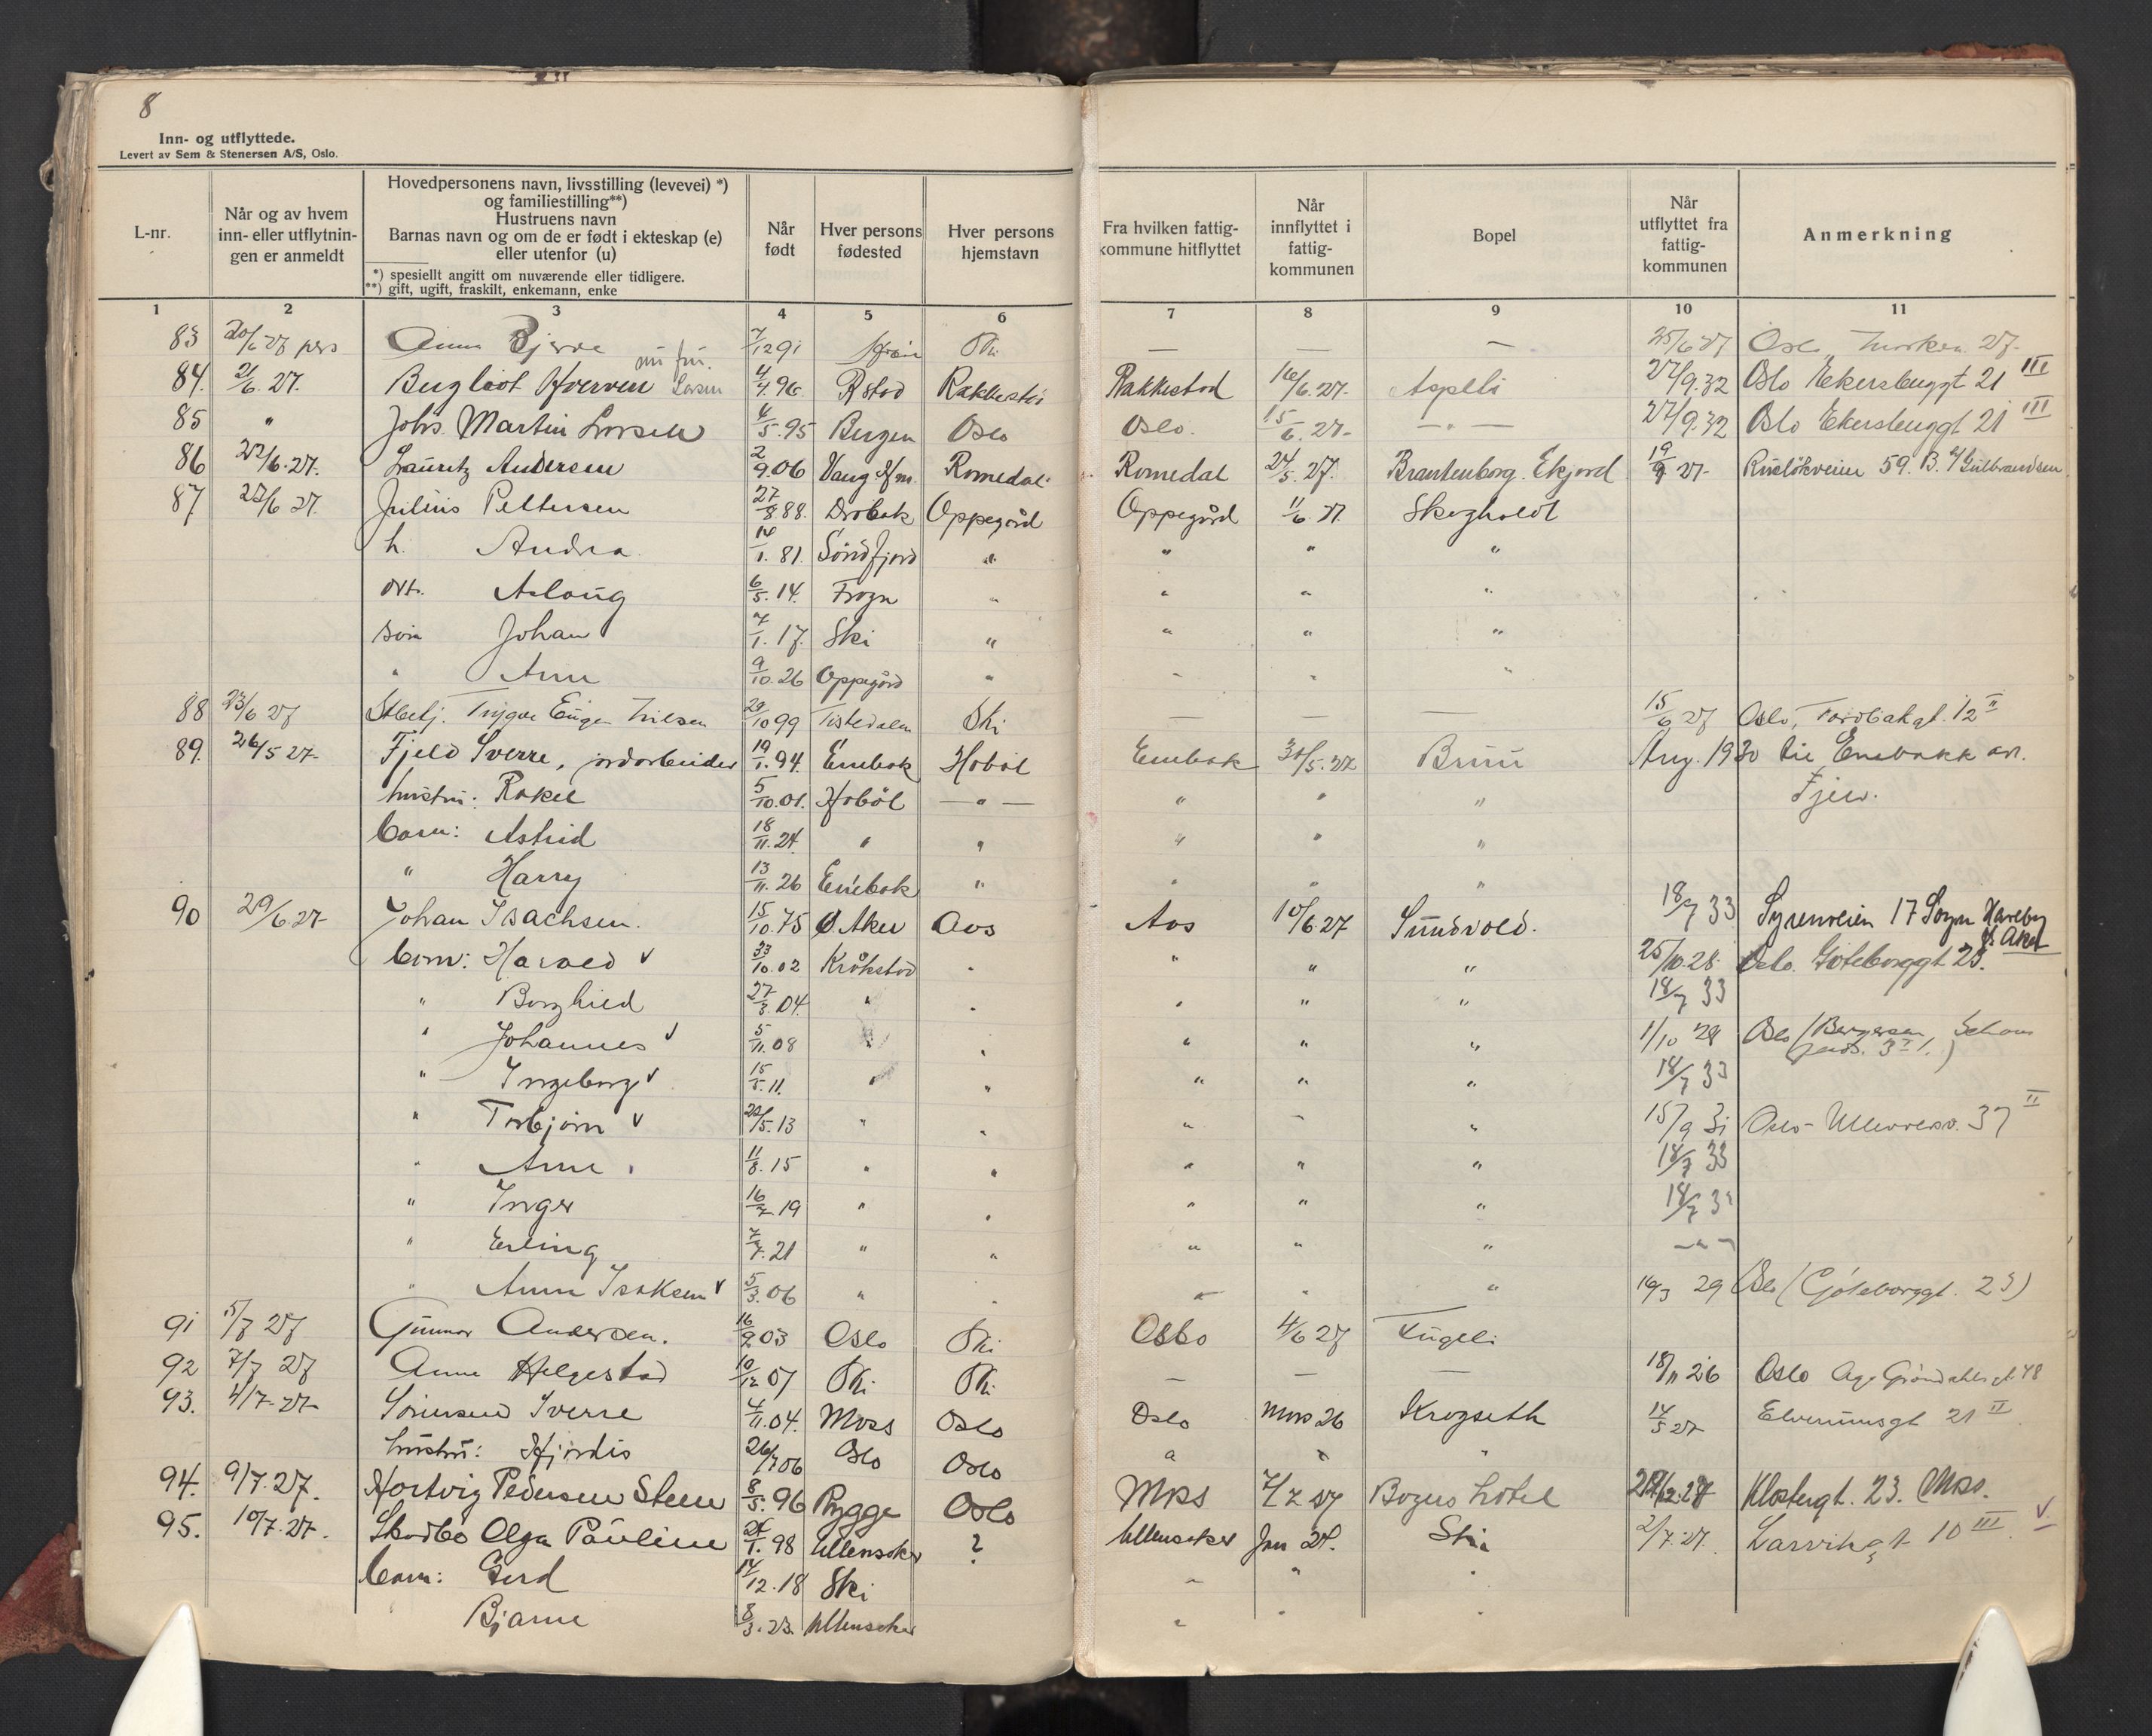 8
Inn- og utflyttede.
Levert av Sem & Stenersen A/S, Oslo.
L-nr.
Når og av hvem
inn- eller utflytnin-
gen er anmeldt
Hovedpersonens navn, livsstilling (levevei) *)
og familiestilling**)
Hustruens navn
Barnas navn og om de er født i ekteskap (e)
eller utenfor (u)
*) spesiellt angitt om nuværende eller tidligere.
**) gift, ugift, fraskilt, enkemann, enke
Når
født
Hver persons
fødested
Hver persons
hjemstavn
Fra hvilken fattig-
kommune hitflyttet
Når
innflyttet i
fattig-
kommunen
Bopel
Når
utflyttet fra
fattig-
kommunen
Anmerkning
1 2 3 4 5 6 7 8 9 10 11
83 20/6 27 pers Anna 7/12 91 Ski — — — 25/6 27 Oslo 27
84. 21/6. 27. Bergliot Hverven nu fru Larsen 4/4 96. R.stad Rakkestad Rakkestad 16/6. 27. Aspeli 27/9. 32 Oslo Ekersberggt 21 III
85 " Johs. Martin Larsen 4/5. 95 Bergen Oslo Oslo. 15/6. 27- — " — 27/9. 32 Oslo Ekersberggt 21 III
86 22/6. 27. Lauritz Andersen 2/9. 06 Vang Hm. Romedal Romedal 24/5. 27. Brantenborg. Ekjord 19/9 27- Ruseløkveien 59. B. Gulbrandsen
87 22/6 27. Julius Pettersen 27/8 88. Drøbak Oppegård Oppegård 11/6. 27. Skogholdt
h. Andrea 14/1. 81. Søndfjord " " " "
dtr. Aslaug 6/5. 14. Frogn " " " "
søn Johan 7/1. 17. Ski " " " "
" Arne 9/10. 26 Oppegård " " " "
88 23/6 27 Trygve Eugen Nilsen 29/10 99 Tistedalen Ski — — — 15/6 27 Oslo, Torvbakgt. 12 II
89. 26/5 27- Fjeld Sverre, jordarbeider 19/1. 94. Enebak Hobøl Enebak 30/5. 27 Bruu Aug. 1930 til Enebakk
hustru: Rakel 5/10. 01. Hobøl — " — " " "
barn: Astrid 18/11. 24. " " " " "
" Harry 13/11. 26 Enebak " " " "
90 29/6 27- Johan Isachsen. 15/10. 75 Ø. Aker Aas Aas 10/6. 27 Sundvold. 18/7 33 Syrenveien 17 Sogn Haveby V. Aker
barn: Harald v 23/10. 02 Kråkstad " " " " 25/10. 28. Oslo. Göteborggt 23.
" Borghild 27/3. 04. " " " " " 18/7 33
" Johannes v 5/11. 08 " " " " " 1/10 28 Oslo (Bergersen,
" Ingeborg v 15/5. 11. " " " " " 18/7 33
" Torbjørn v 22/5. 13 " " " " " 15/9 31 Oslo - Ullevålsv. 37 II
" Arne 11/8. 15 " " " " " 18/7 33
" Inger 16/7. 19 " " " " " 18/7 33
" Erling 7/7. 21 " " " " " — " —
" Anna Isaksen v 5/3. 06 " " " " " 16/3 29 Oslo (Göteborggt. 23)
91 5/7 27 Gunnar Andersen. 16/9 03 Oslo Ski Oslo 4/6 27 Fugeli
92 7/7 27 Anna Helgestad 10/12 07 Ski Ski — — — 18/11 26 Oslo Ag. Grøndahlsgt 48
93. 4/7- 27- Sørensen Sverre 4/11. 04. Moss Oslo Oslo mars 26 Krogseth 14/5 27 Elverumsgt 21 II
hustru: Hjørdis 26/7 06 Oslo Oslo " " "
94. 9/7. 27. Hartvig Pedersen Steen 8/5. 96 Rygge Oslo Moss 7/7 27 Bogers hotel Klostergt. 23. Moss.
95. 10/7. 27. Skodbo Olga Pauline 24/1. 98 Ullensaker ? Ullensaker Jan 27. Ski 2/7. 27. Larvikgt 10 III. v
barn: Gerd 14/12. 18 Ski " " "
Bjarne 8/3. 23. Ullensaker " " "